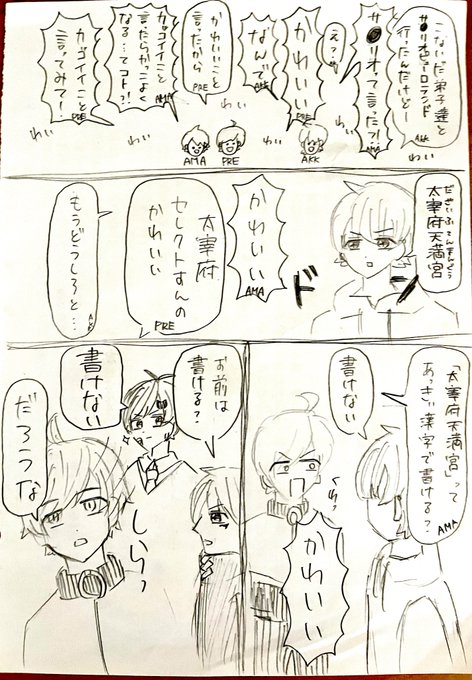 こないだ弟子達と
サ●リオピューロランド
行ったんだけどー
AKK
サ●リオって言ったァ!?
AMA
えっ…
かわいい
PRE
なんで
AKK
かわいいこと
言ったから
PRE
カッコイイこと
言ったらかっこよく
なる…てコト?!
AMA
カッコイイこと
言ってみて!
PRE
わい
わい
わい
わい
わい
AMA
PRE
AKK
太宰府天満宮
だざいふてんまんぐう
ドン
かわいい
AMA
太宰府
セレクトすんの
かわいい
PRE
もうどうしろと…
「太宰府天満宮」って
あっきぃ漢字で書ける?
AMA
書けない
かわいい
お前は
書ける?
書けない
しれっ
だろうな